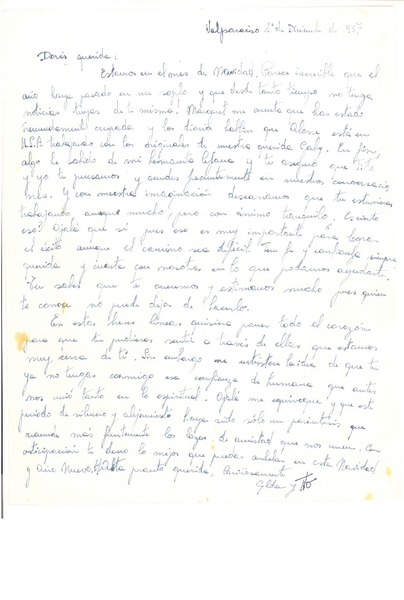 Valparaíso 1º de Diciembre de 957
Doris querida:
Estamos en el mes de Navidad. Parece increíble que el
año haya pasado en un soplo y que desde tanto tiempo no tenga
noticias tuyas de ti misma! Margot me cuenta que has estado
nuevamente enferma y los diarios hablan que Alone está en
U.S.A trabajando con los originales de nuestra querida Gaby. En fin,
algo he sabido de mi hermanita lejana y te aseguro que Tito
y yo te pensamos y acudes frecuentemente en nuestras conversacio
nes. Y con nuestra imaginación desearíamos que tu estuvieras
trabajando aunque mucho, pero con ánimo tranquilo. Es cierto
eso? Ojalá que sí pues eso es muy importante para lograr
el éxito aunque el camino sea difícil. Ten fe y confianza siempre
querida y cuenta con nosotros en lo que podamos ayudarte.
Tú sabes que te queremos y estimamos mucho pues quien
te conoce no puede dejar de hacerlo.
En estas breves líneas quisiera poner todo el corazón
para que tu pudieras sentir a través de ellas que estamos
muy cerca de ti. Sin embargo me entristece la idea de que tu
ya no tengas conmigo esa confianza de hermana que antes
nos unió tanto en lo espiritual. Ojalá me equivoque y que este
período de silencio y alejamiento haya sido sólo un paréntesis que
reanude más fuertemente los lazos de amistad que nos unen. Con
anticipación te deseo lo mejor que puedas anhelar en esta Navidad
y Año Nuevo. Hasta pronto querida. Cariñosamente
Gilda y Tito